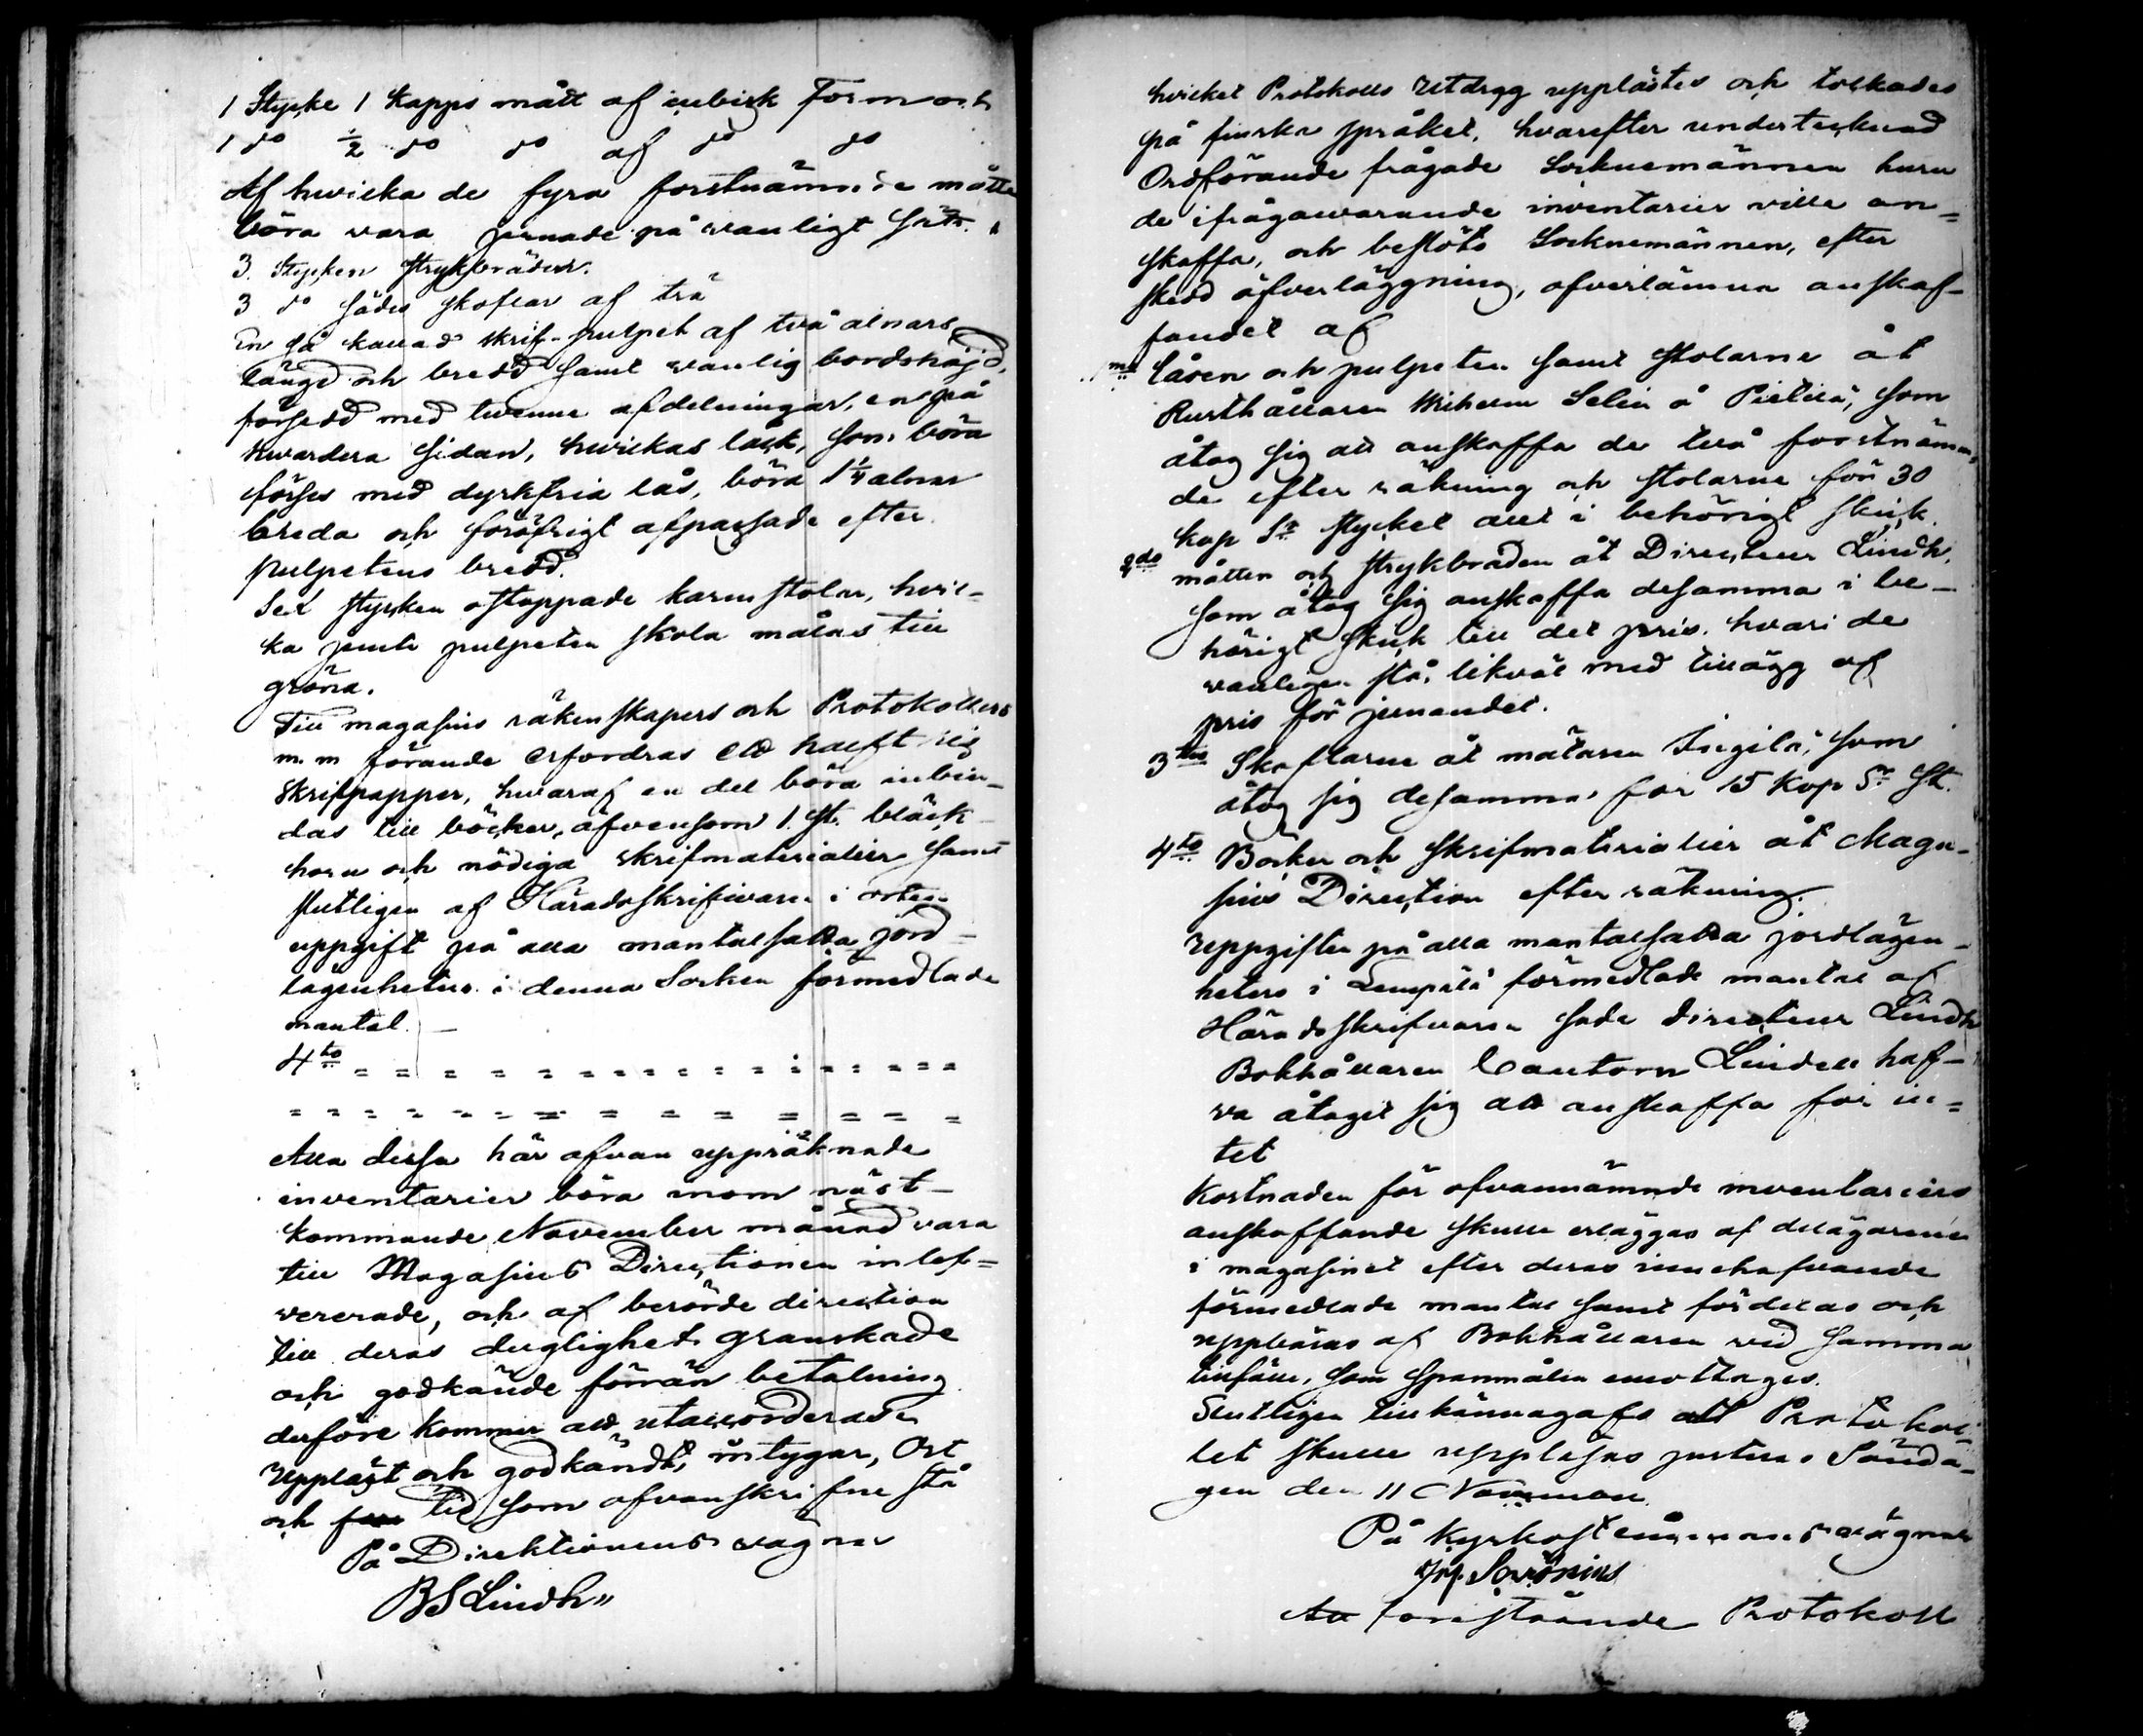 1 Stycke 1 Kapps mått af cubisk Form och
1 do ½ do do af do do
Af hwilka de fyra förstnämnde måtten
böra vara jernade på wanligt sätt.
3. Stycken strykbräden.
3 do sädes skoflar af trä
En så kallad skrif-pulpet af två alnars
längd och bredd samt wanlig bordshöjd,
försedd med twenne afdelningar, en på
hwardera sidan, hwilkas låck, som böra
förses med dyrkfria lås, böra 1¼ alnar
breda och föröfrigt afpassade efter
pulpetens bredd.
Sex stycken ostoppade karmstolar, hvil-
ka jemte pulpeten skola målas till
gröna.
Till magasins räkenskapers och Protokollers
m.m förande erfordras ett halft ris
skrifpapper, hwaraf en del böra inbin-
das till böcker, äfvensom 1. st. bläck-
horn och nödiga skrifmaterialier samt
slutligen af Häradsskrifwaren i orten
uppgift på alla mantalsatta jord-
lägenheters i denna Socken förmedlade
mantal. —
4to = = = = = = = = = = = = =
= = = = = = = = = = = =
Alla dessa här ofvan uppräknade
inventarier böra inom näst-
kommande November månad vara
till Magasins Directionen inlef=
vererade, och af berörde direction
till deras duglighet granskade
och godkände förrän betalning
derföre kommer att utanordnas.
Uppläst och godkändt, intygar, Ort
och tid som ofvanskrifne stå
På Direktionens wägnar
BS Lindh"
hvilket Protokolls Utdrag upplästes och tolkades
på finska språket, hvarefter undertecknad
Ordförande frågade Socknemännen huru
de ifrågawarande inventarier ville an=
skaffa, och beslöto Socknemännen, efter
skedd öfverläggning, öfverlämna anskaf-
fandet af
1mo Låren och pulpeten samt stolarne åt
Rusthållaren Wilhelm Selin å Pietilä, som
åtog sig att anskaffa de två förstnämn=
de efter räkning och stolarne för 30
kop Sr stycket allt i behörigt skick.
2do måtten och strykbräden åt Directeur Lindh,
som åtog sig anskaffa desamma i be-
hörigt skick till det pris, hvari de
vanligen stå, likväl med tillägg af
pris för jernandet.
3tio Skoflarne åt mätaren Sigilä, som
åtog sig desamma för 15 Kop Sr St.
4to Böcker och skrifmaterialier åt Maga-
sins Direction efter räkning.
Uppgiften på alla mantalsatta jordlägen-
heters i Lempälä förmedlade mantal af
Häradsskrifvaren sade directeur Lindh
Bokhållaren Cantorn Lindell haf-
va åtagit sig att anskaffa för in=
tet
Kostnaden för ofvannämnde inventariers
anskaffande skulle erläggas af delägarene
i magasinet efter deras innehafvande
förmedlade mantal samt fördelas och
uppbäras af Bokhållaren vid samma
tillfälle, som spannmålen emottages.
Slutligen tillkännagafs att Protokol-
let skulle uppläsas justeras Sönda-
gen den 11 November
På Kyrkostämmans vägnar
Jos. Savonius
Att förestående Protokoll